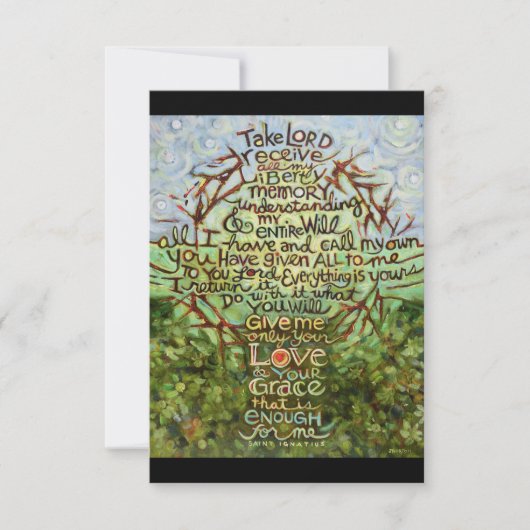 Take LORD
receive
all my
liberty
memory
understanding
& my
ENTIRE Will
all I have and CALL my own
You Have given ALL to me
to You Lord, Everything is yours
I return it
Do with it what
YOU Will
GIVE ME
only Your
LOVE
& YOUR
GRACE
that is
ENOUGH
for me
SAINT IGNATIUS